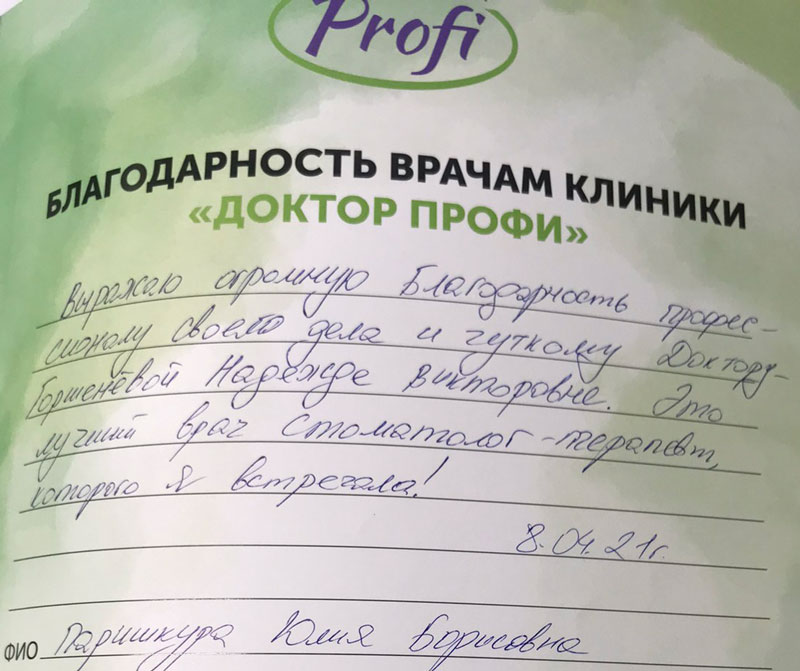 Profi
БЛАГОДАРНОСТЬ ВРАЧАМ КЛИНИКИ
«ДОКТОР ПРОФИ»
Выражаю огромную Благодарность профес-
сионалу своего дела и чуткому Доктору-
Горшенёвой Надежде Викторовне. Это
лучший врач Стоматолог-терапевт,
которого я встречала!
8.04.21г.
ФИО Паришкура Юлия Борисовна